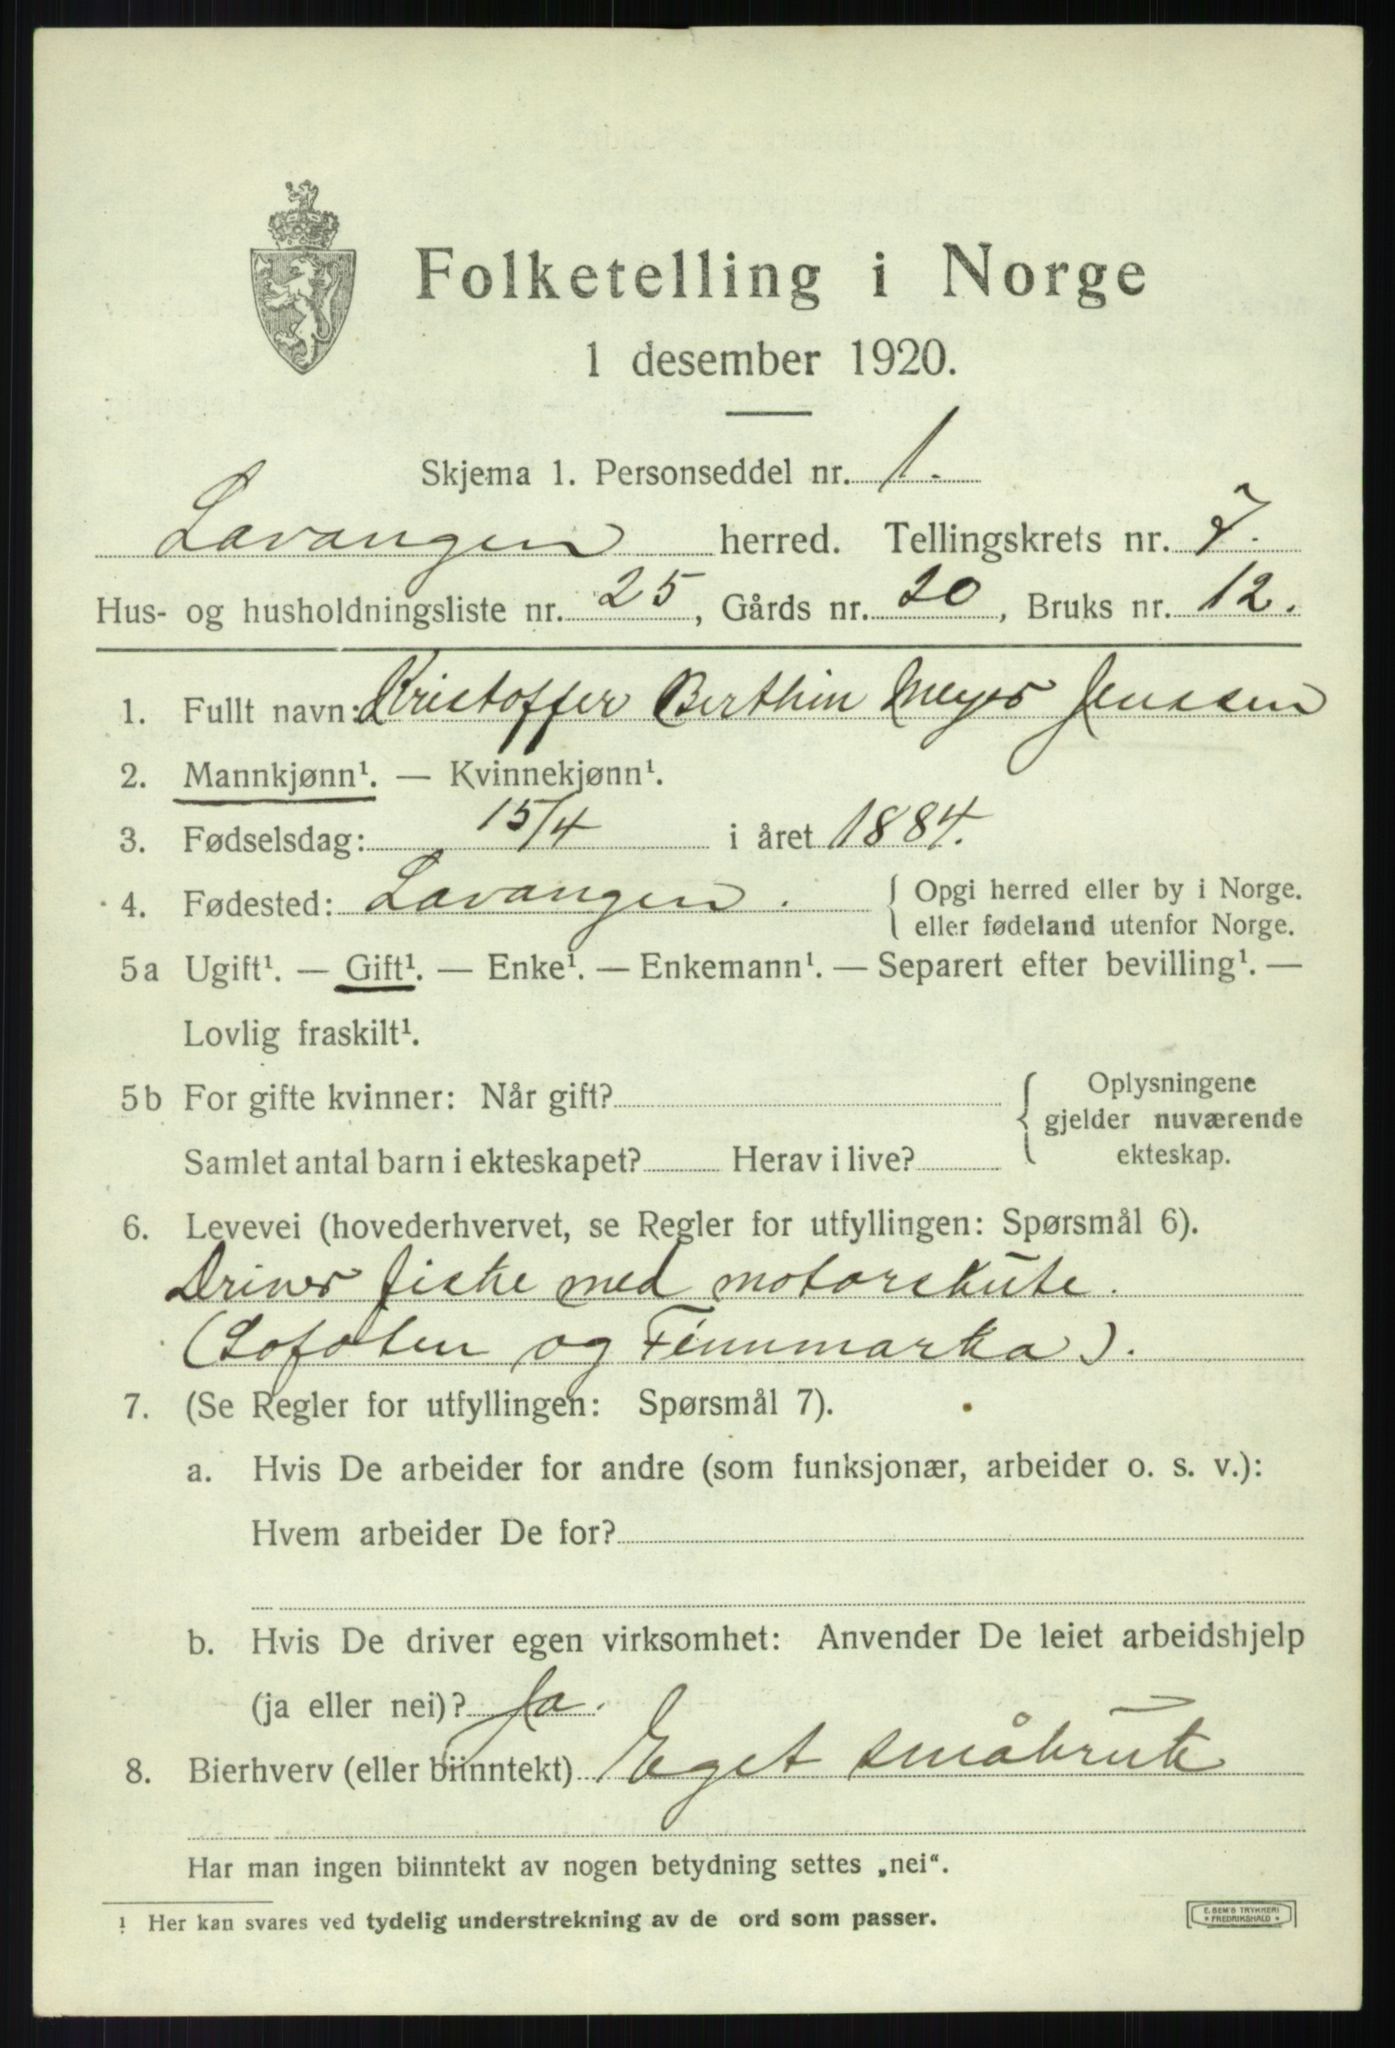 Folketelling i Norge
1 desember 1920.
Skjema 1. Personseddel nr. 1.
Lavangen herred. Tellingskrets nr. 7.
Hus- og husholdningsliste nr. 25, Gårds nr. 20, Bruks nr. 12.
1. Fullt navn: Kristoffer Berthin Meyer Jenssen
2. Mannkjønn¹. — Kvinnekjønn¹.
3. Fødselsdag: 15/4 i året 1884.
4. Fødested: Lavangen. { Opgi herred eller by i Norge.
eller fødeland utenfor Norge.
5a Ugift¹. — Gift¹. — Enke¹. — Enkemann¹. — Separert efter bevilling¹. —
Lovlig fraskilt¹.
5b For gifte kvinner: Når gift?
Samlet antal barn i ekteskapet? Herav i live?
{ Oplysningene
gjelder nuværende
ekteskap.
6. Levevei (hovederhvervet, se Regler for utfyllingen: Spørsmål 6).
Driver fiske med motorskute.
(Lofoten og Finnmarka).
7. (Se Regler for utfyllingen: Spørsmål 7).
a. Hvis De arbeider for andre (som funksjonær, arbeider o. s. v.):
Hvem arbeider De for?
b. Hvis De driver egen virksomhet: Anvender De leiet arbeidshjelp
(ja eller nei)? Ja.
8. Bierhverv (eller biinntekt) Eget småbruk
Har man ingen biinntekt av nogen betydning settes „nei“.
¹ Her kan svares ved tydelig understrekning av de ord som passer.
E. SEM'S TRYKKERI
* FREDRIKSHALD *